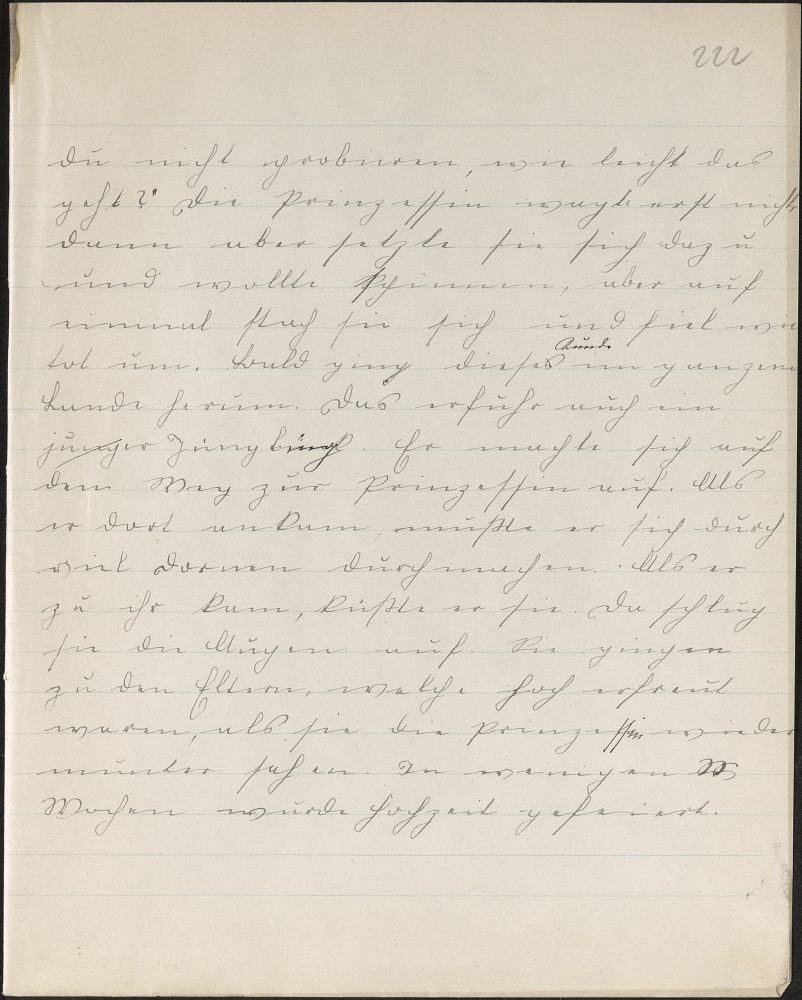 222
du nicht probieren, wie leicht das
geht?" Die Prinzessin wagte erst nicht,
dann aber setzte sie sich dazu
und wollte spinnen, aber auf
einmal stach sie sich und fiel wie
tot um. Bald ging diese Kunde im ganzen
Lande herum. Das erfuhr auch ein
junger Jüngling. Er machte sich auf
den Weg zur Prinzessin auf. Als
er dort ankam, mußte er sich durch
viel Dornen durchmachen. Als er
zu ihr kam, küßte er sie. Da schlug
sie die Augen auf. Sie gingen
zu den Eltern, welche hoch erfreut
waren, als sie die Prinzessin wieder
munter sahen. In wenigen W
Wochen wurde Hochzeit gefeiert.